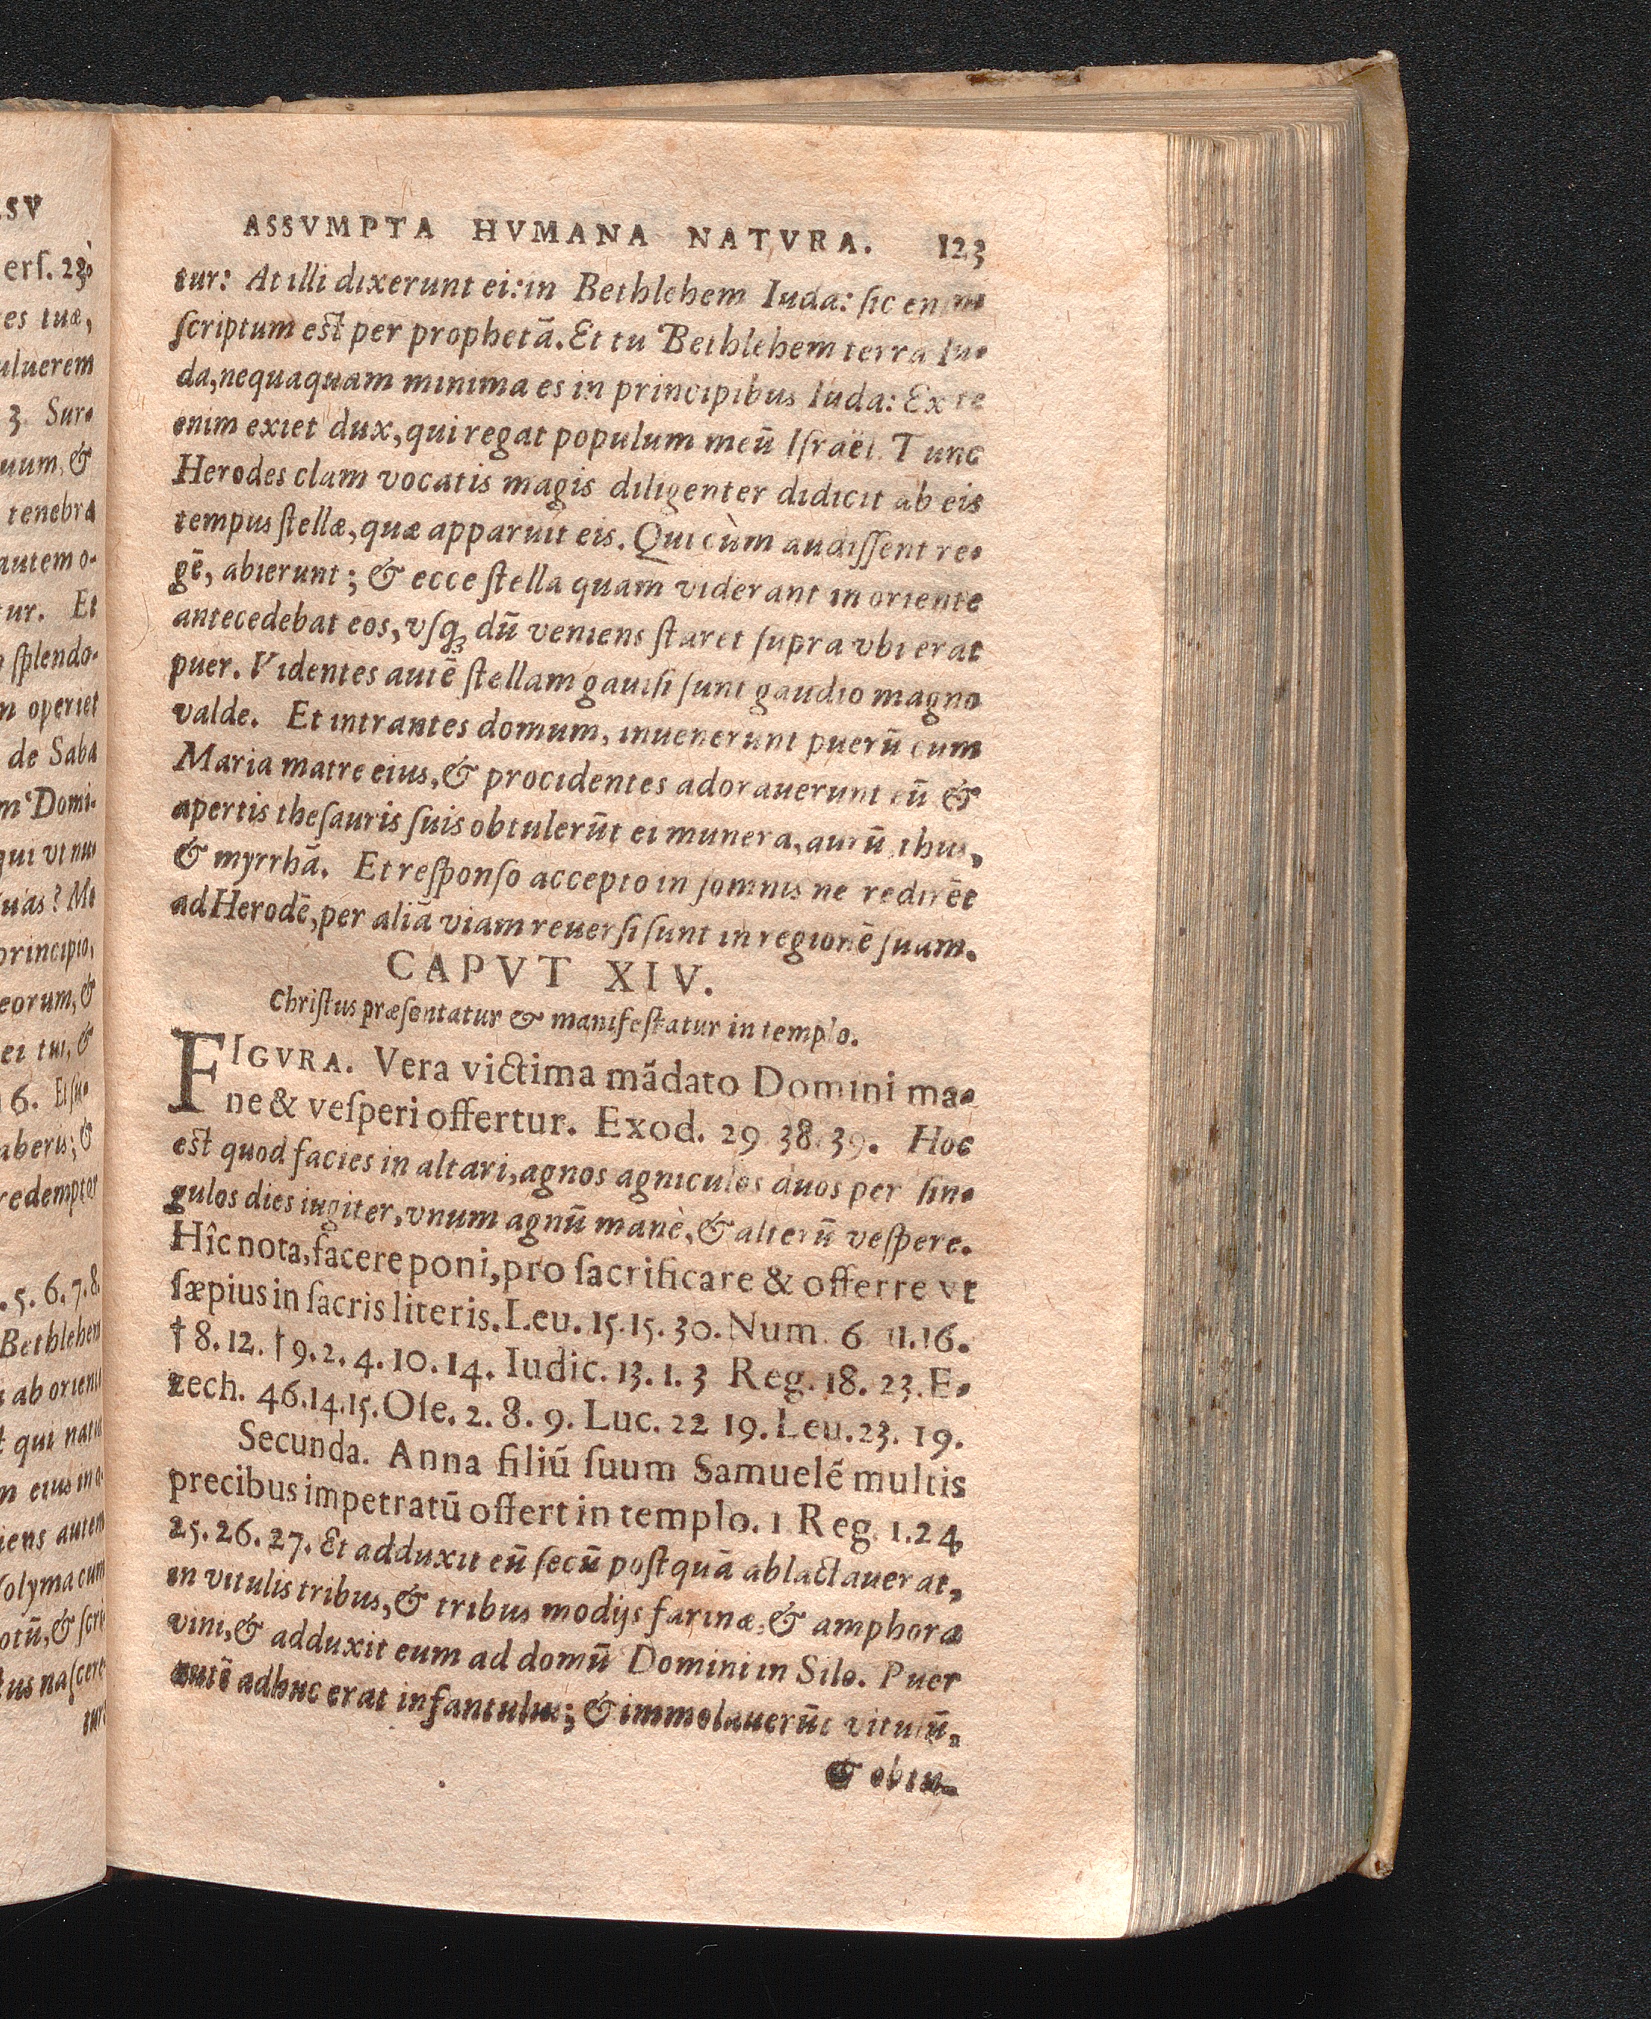 ASSVMPTA HVMANA NATVRA. 123
tur: At illi dixerunt ei: in Bethlehem Iuda: sic enim
ſcriptum est per prophetã. Et tu Bethlehem terra Iu-
da, nequaquam minima es in principibus Iuda: Ex te
enim exiet dux, qui regat populum meũ Iſraël. Tunc
Herodes clam vocatis magis diligenter didicit ab eis
tempus ſtellæ, quæ apparuit eis. Qui cùm audiſſent re-
gẽ, abierunt; & ecce ſtella quam viderant in oriente
antecedebat eos, vſq; dũ veniens ſtaret ſupra vbi erat
puer. Videntes autẽ ſtellam gauiſi ſunt gaudio magno
valde. Et intrantes domum, inuenerunt puerũ cum
Maria matre eius, & procidentes adorauerunt eũ &
apertis theſauris ſuis obtulerũt ei munera, aurũ, thus,
& myrrhã. Et reſponſo accepto in ſomnis ne redirẽt
ad Herodẽ, per aliã viam reuerſi ſunt in regionẽ ſuam.
CAPVT XIV.
Chriſtus præſentatur & manifeſtatur in templo.
FIGVRA. Vera victima mãdato Domini ma-
ne & veſperi offertur. Exod. 29. 38. 39. Hoc
est quod facies in altari, agnos agniculos duos per ſin-
gulos dies iugiter, vnum agnũ manè, & alterũ veſpere.
Hîc nota, facere poni, pro ſacrificare & offerre vt
ſæpius in ſacris literis. Leu. 15. 15. 30. Num. 6 11. 16.
† 8. 12. † 9. 2. 4. 10. 14. Iudic. 13. 1. 3 Reg. 18. 23. E-
zech. 46. 14. 15. Oſe. 2. 8. 9. Luc. 22 19. Leu. 23. 19.
Secunda. Anna filiũ ſuum Samuelẽ multis
precibus impetratũ offert in templo. 1 Reg. 1. 24,
25. 26. 27. Et adduxit eũ ſecũ poſtquã ablactauerat,
in vitulis tribus, & tribus modijs farinæ, & amphora
vini, & adduxit eum ad domũ Domini in Silo. Puer
autẽ adhuc erat infantulus; & immolauerũt vitulũ,
& obtu-
ſv
erſ. 23
es tuæ,
uluerem
3. Sur-
uum, &
tenebra
autem o-
tur. Et
ſplendo-
operiet
de Saba
m Domi-
qui vt nu
tuas? Me
principio,
eorum, &
ei tui, &
6. Et ſu-
aberis; &
redemptor
. 5. 6. 7. 8.
Bethlehem
ab orient
qui natu
eius in o-
iens autem
olyma cum
otũ, & ſcri
tus naſcere-
tur: